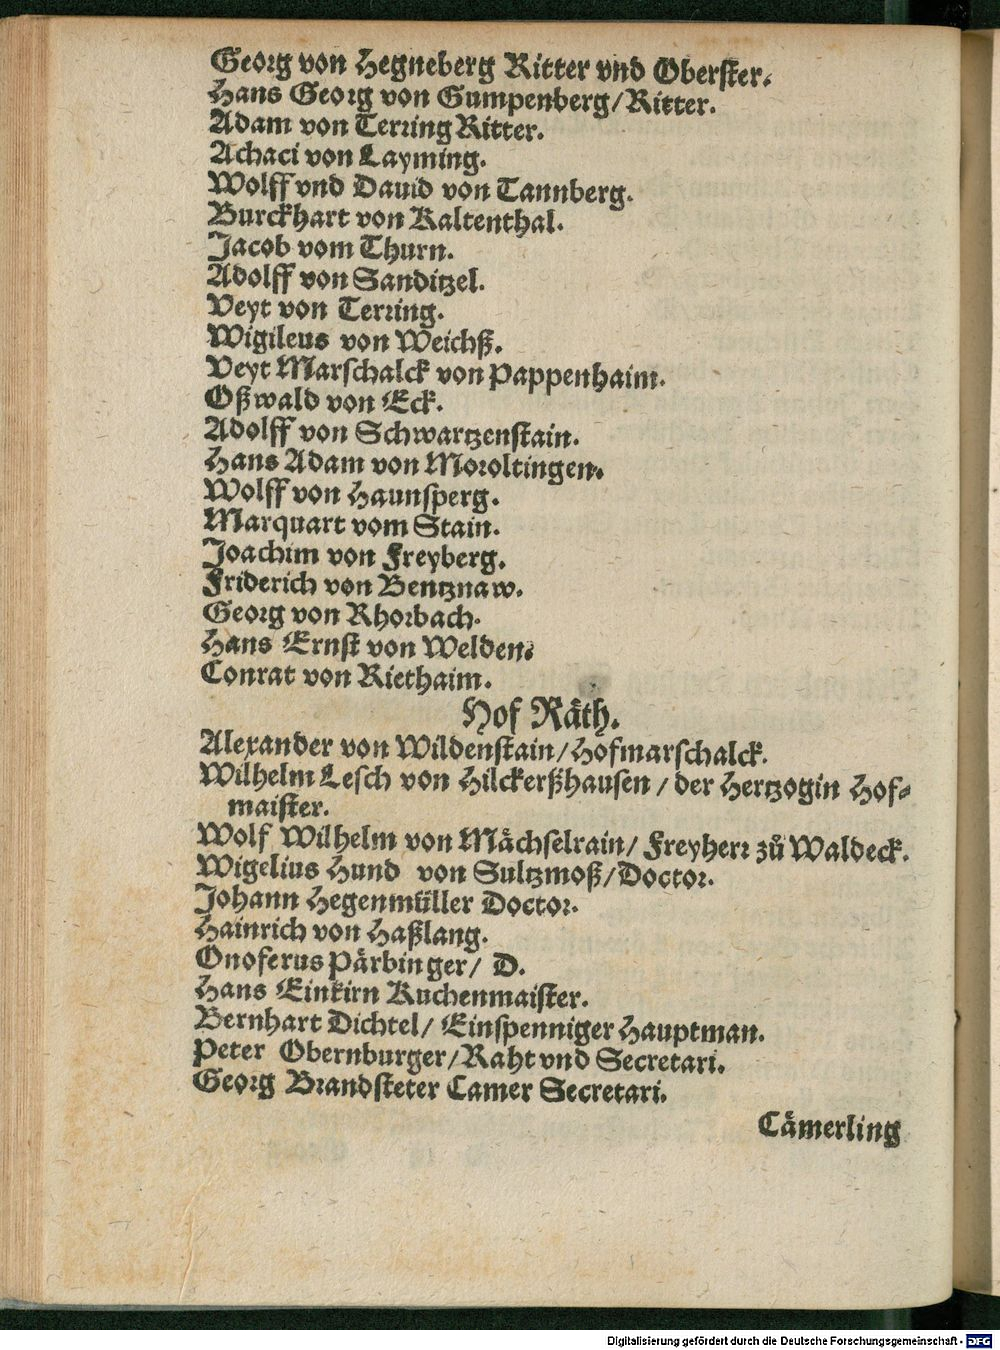 Georg von Hegneberg Ritter vnd Oberster.
Hans Georg von Gumpenberg/Ritter.
Adam von Terring Ritter.
Achaci von Layming.
Wolff vnd Dauid von Tannberg.
Burckhart von Kaltenthal.
Jacob vom Thurn.
Adolff von Sanditzel.
Veyt von Terring.
Wigileus von Weichß.
Veyt Marschalck von Pappenhaim.
Oßwald von Eck.
Adolff von Schwartzenstain.
Hans Adam von Moroltingen.
Wolff von Haunsperg.
Marquart vom Stain.
Joachim von Freyberg.
Friderich von Bentznaw.
Georg von Rhorbach.
Hans Ernst von Welden.
Conrat von Riethaim.
Hof Räth.
Alexander von Wildenstain/Hofmarschalck.
Wilhelm Lesch von Hilckerßhausen / der Hertzogin Hof-
maister.
Wolf Wilhelm von Mächselrain/ Freyherr zů Waldeck.
Wigelius Hund von Sultzmoß/Doctor.
Johann Hegenmüller Doctor.
Hainrich von Haßlang.
Onoferus Pärbinger/ D.
Hans Einkirn Kuchenmaister.
Bernhart Dichtel/ Einspenniger Hauptman.
Peter Obernburger/Raht vnd Secretari.
Georg Brandsteter Camer Secretari.
Cämerling
Digitalisierung gefördert durch die Deutsche Forschungsgemeinschaft - DFG